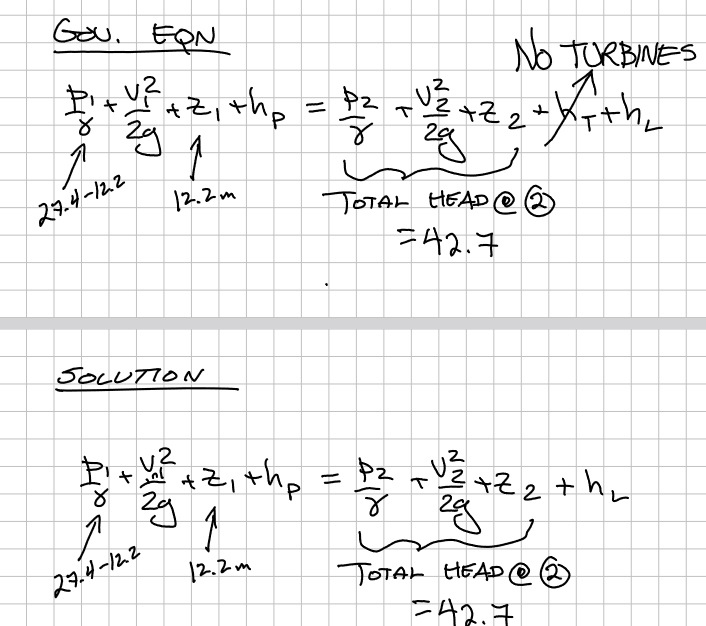 GOV. EQN
NO TURBINES
P₁/γ + V₁²/2g + Z₁ + hₚ = P₂/γ + V₂²/2g + Z₂ + h_T + h_L
27.4-12.2
12.2m
TOTAL HEAD @ ②
=42.7
SOLUTION
P₁/γ + V₁²/2g + Z₁ + hₚ = P₂/γ + V₂²/2g + Z₂ + h_L
27.4-12.2
12.2m
TOTAL HEAD @ ②
=42.7